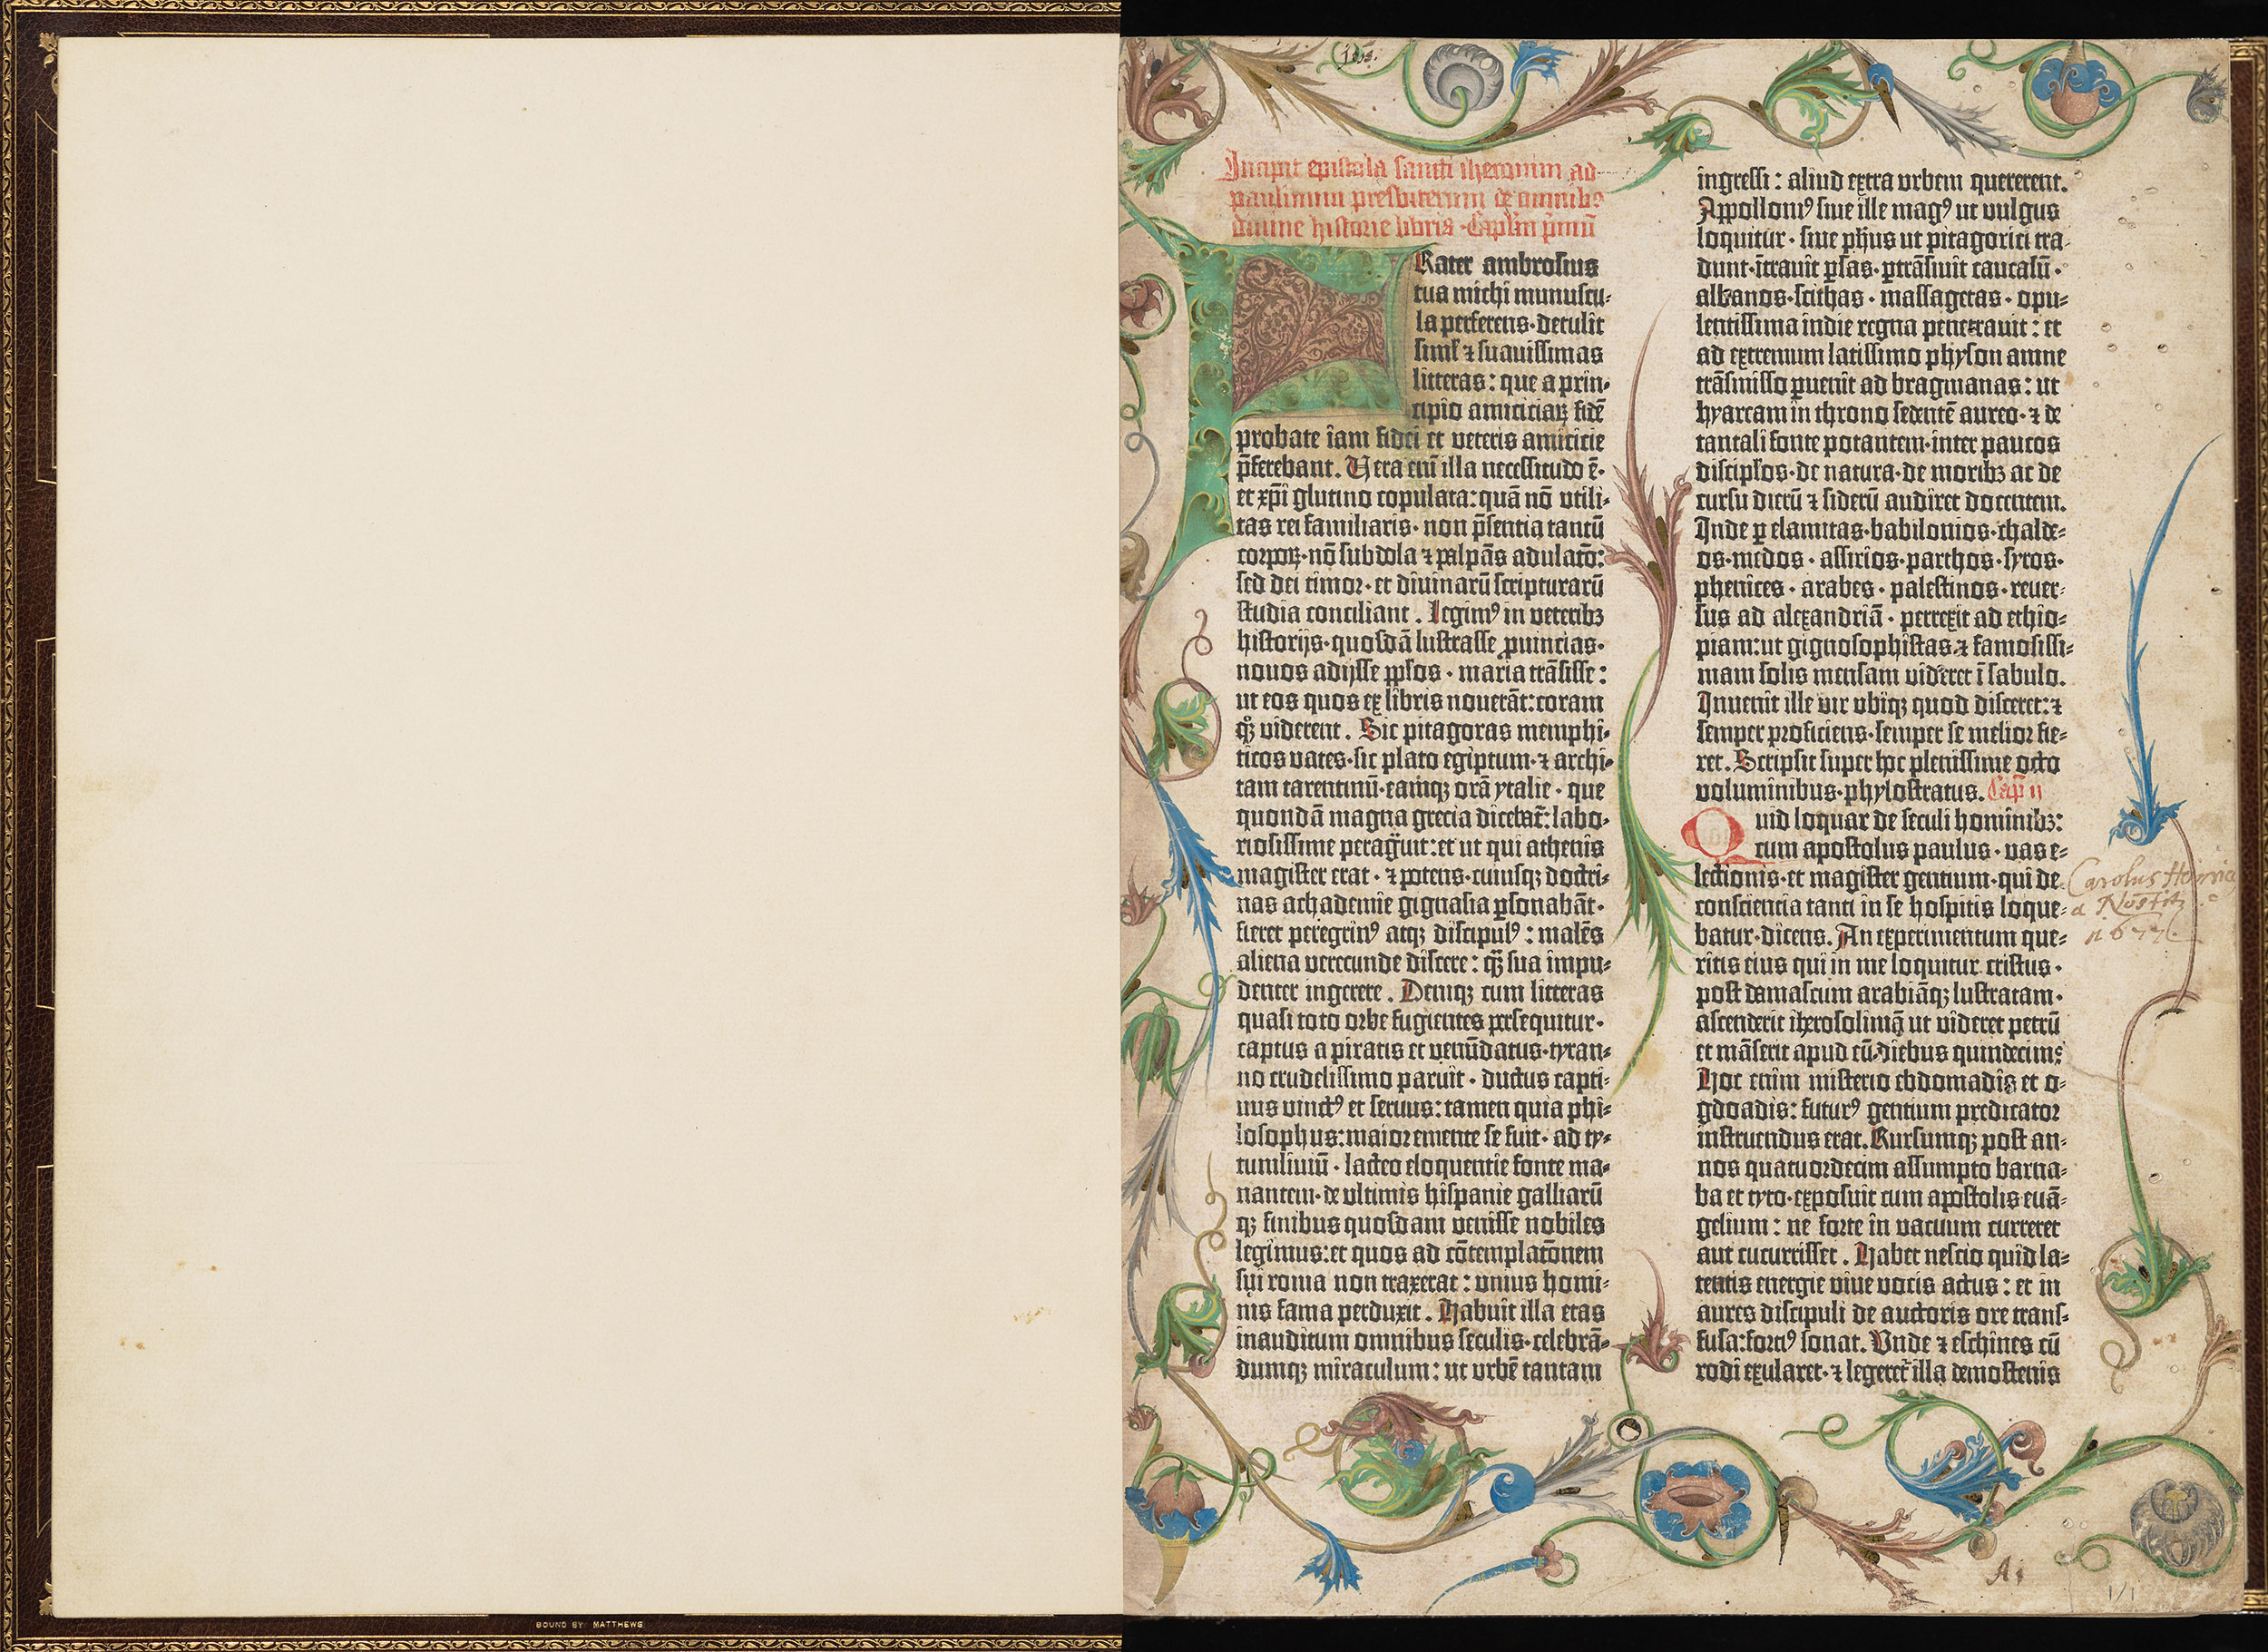 Incipit epistola sancti iheronimi ad
paulinum presbiterum de omnibꝫ
diuine historie libris·Capl̄m p̄mū
Frater ambrosius
tua michi munuscu-
la perferens·detulit
siml̕ ⁊ suauissimas
litteras: que a prin-
cipio amiciciaꝝ fidē
probate iam fidei et veteris amicicie
p̄ferebant. Uera em̄ illa necessitudo ē·
et xp̄i glutino copulata: quā nō utili-
tas rei familiaris· non p̄sentia tantū
corpoꝝ·nō subdola ⁊ palpās adulatō:
sed dei timor· et diuinarū scripturarū
studia conciliant. Legimꝰ in veteribꝫ
historijs·quosdā lustrasse ꝓuincias·
nouos adijsse pp̄los · maria trāsisse:
ut eos quos ex libris nouerāt: coram
qꝫ viderent. Sic pitagoras memphi-
ticos vates·sic plato egiptum·⁊ archi-
tam tarentinū·eamqꝫ orā ytalie· que
quondā magna grecia dicebat̄: labo-
riosissime peragūit: et ut qui athenis
magister erat · ⁊ potens·cuiusqꝫ doctri-
nas achademie gignasia ꝑsonabāt·
fieret peregrinꝰ atqꝫ discipulꝰ: malēs
aliena verecunde discere: qꝫ̄ sua impu-
denter ingerere. Deniqꝫ cum litteras
quasi toto orbe fugientes persequitur·
captus a piratis et venūdatus·tyran-
no crudelissimo paruit· ductus capti-
uus vinctꝰ et seruus: tamen quia phi-
losophus: maior emente se fuit· ad ty-
tumliuiū· lacteo eloquentie fonte ma-
nantem·de ultimis hispanie galliarū
qꝫ finibus quosdam venisse nobiles
legimus: et quos ad cōtemplatōnem
sui roma non traxerat: unius homi-
nis fama perduxit. Habuit illa etas
inauditum omnibus seculis·celebrā-
dumqꝫ miraculum: ut urbē tantam
ingressi: aliud extra urbem quererent.
Appollonꝰ siue ille magꝰ ut vulgus
loquitur· siue ph̄us ut pitagorici tra-
dunt·ītrauit ꝑsas·ꝑtrāsiuit caucasū·
albanos·scithas·massagetas·opu-
lentissima indie regna penetrauit: et
ad extremum latissimo physon amne
trāsmisso ꝑuenit ad bragmanas: ut
hyarcam in throno sedentē aureo·⁊ de
tantali fonte potantem·inter paucos
discipl̕os·de natura·de moribꝫ ac de
cursu dierū ⁊ siderū audiret docentem.
Inde ꝑ elamitas·babilonios·chalde-
os·medos·assirios·parthos·syros·
phenices·arabes·palestinos·reuer-
sus ad alexandriā· perrexit ad ethio-
piam: ut gignosophistas ⁊ famosissi-
mam solis mensam videret ī sabulo.
Inuenit ille vir ubiqꝫ quod disceret: ⁊
semper proficiens·semper se melior fie-
ret. Scripsit super hoc plenissime octo
voluminibus·phylostratus. Cap̄ ii
Quid loquar de seculi hominibꝫ:
cum apostolus paulus· vas e-
lectionis·et magister gentium·qui de
conscientia tanti in se hospitis loque-
batur·dicens. An experimentum que-
ritis eius qui in me loquitur cristus·
post damascum arabiāqꝫ lustratam·
ascenderit iherosolimā ut videret petrū
et māserit apud eū·diebus quindecim:
Hoc enim misterio ebdomadis et o-
gdoadis: futurꝰ gentium predicator
instruendus erat. Rursumqꝫ post an-
nos quatuordecim assumpto barna-
ba et tyto·exposuit cum apostolis euā-
gelium: ne forte in vacuum curreret
aut cucurrisset. Habet nescio quid la-
tentis energie viue vocis actus: et in
aures discipuli de auctoris ore trans-
fusa: fortiꝰ sonat. Vnde ⁊ eschines cū
rodi exularet·⁊ legeret̄ illa demostenis
Carolus
a Nostitz
A
1/1
BOUND BY MATTHEWS